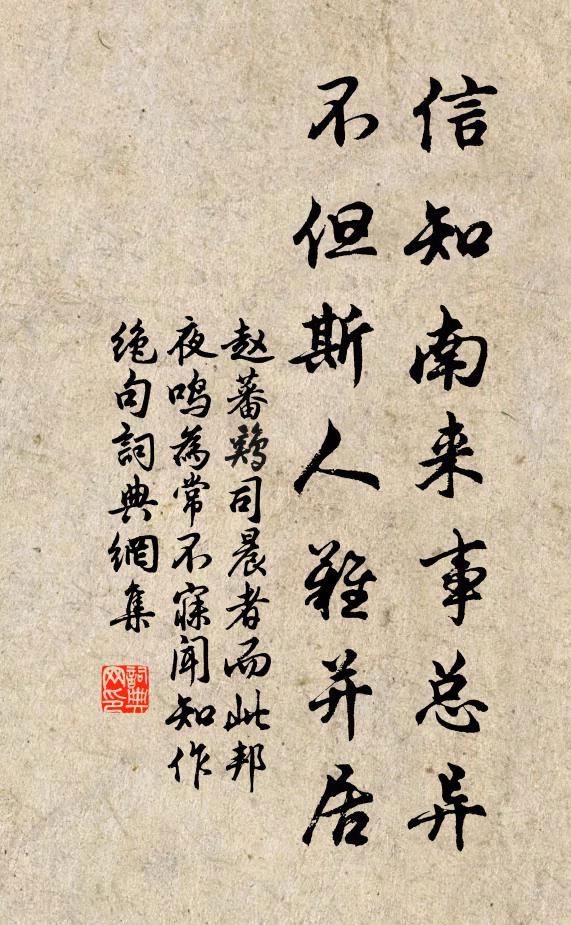 信知南来事总异
不但斯人难并居
赵蕃鸡司晨者而此邦
夜鸣为常不寐闻知作
绝句词典网集
詞典
网印